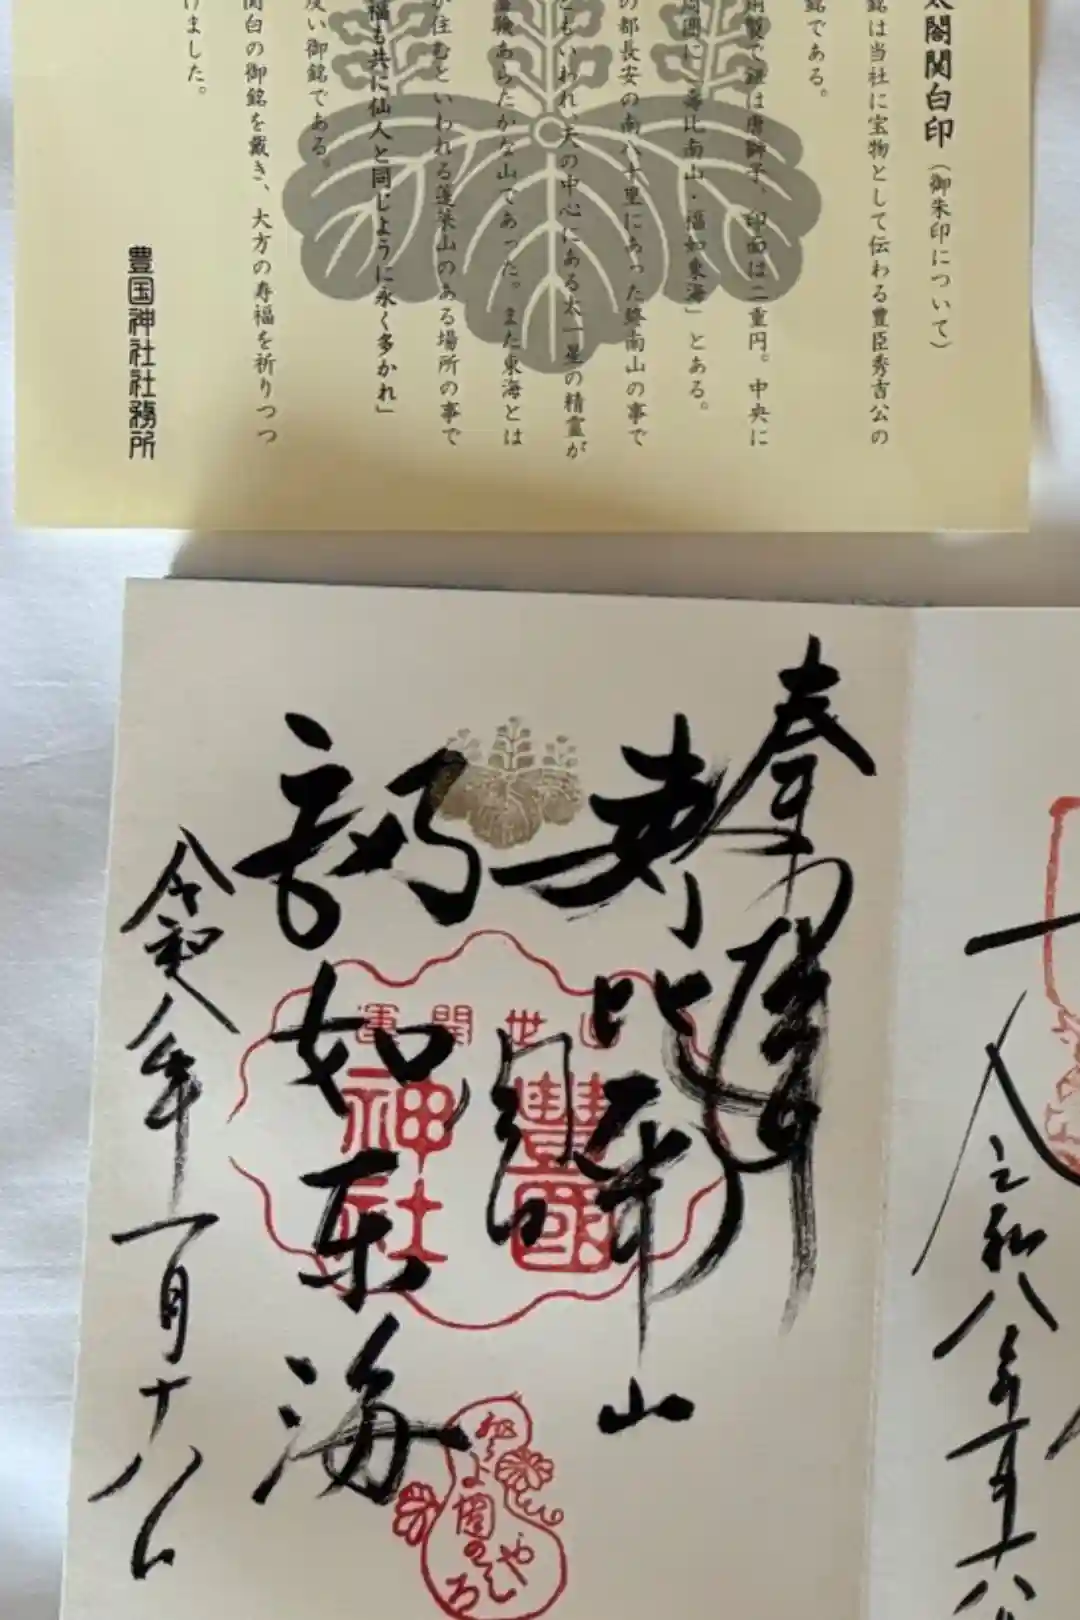 太閤関白印（御朱印について）
銘は当社に宝物として伝わる豊臣秀吉公の
銘である。
銅製で鎌は唐獅子、印面は二重円。中央に
周囲に「壽比南山・福如東海」とある。
の都長安の南八十里にあった終南山の事で
ともいわれ、天の中心にある太一星の精霊が
霊験あらたかな山であった。また東海とは
が住むといわれる蓬莱山のある場所の事で
福も共に仙人と同じように永く多かれ」
度い御銘である。
関白の御銘を戴き、大方の寿福を祈りつつ
けました。
豊国神社社務所
奉拝
壽比南山
福如東海
令和八年一月十八日
出世開運
豊國
神社
令和八年一月十八